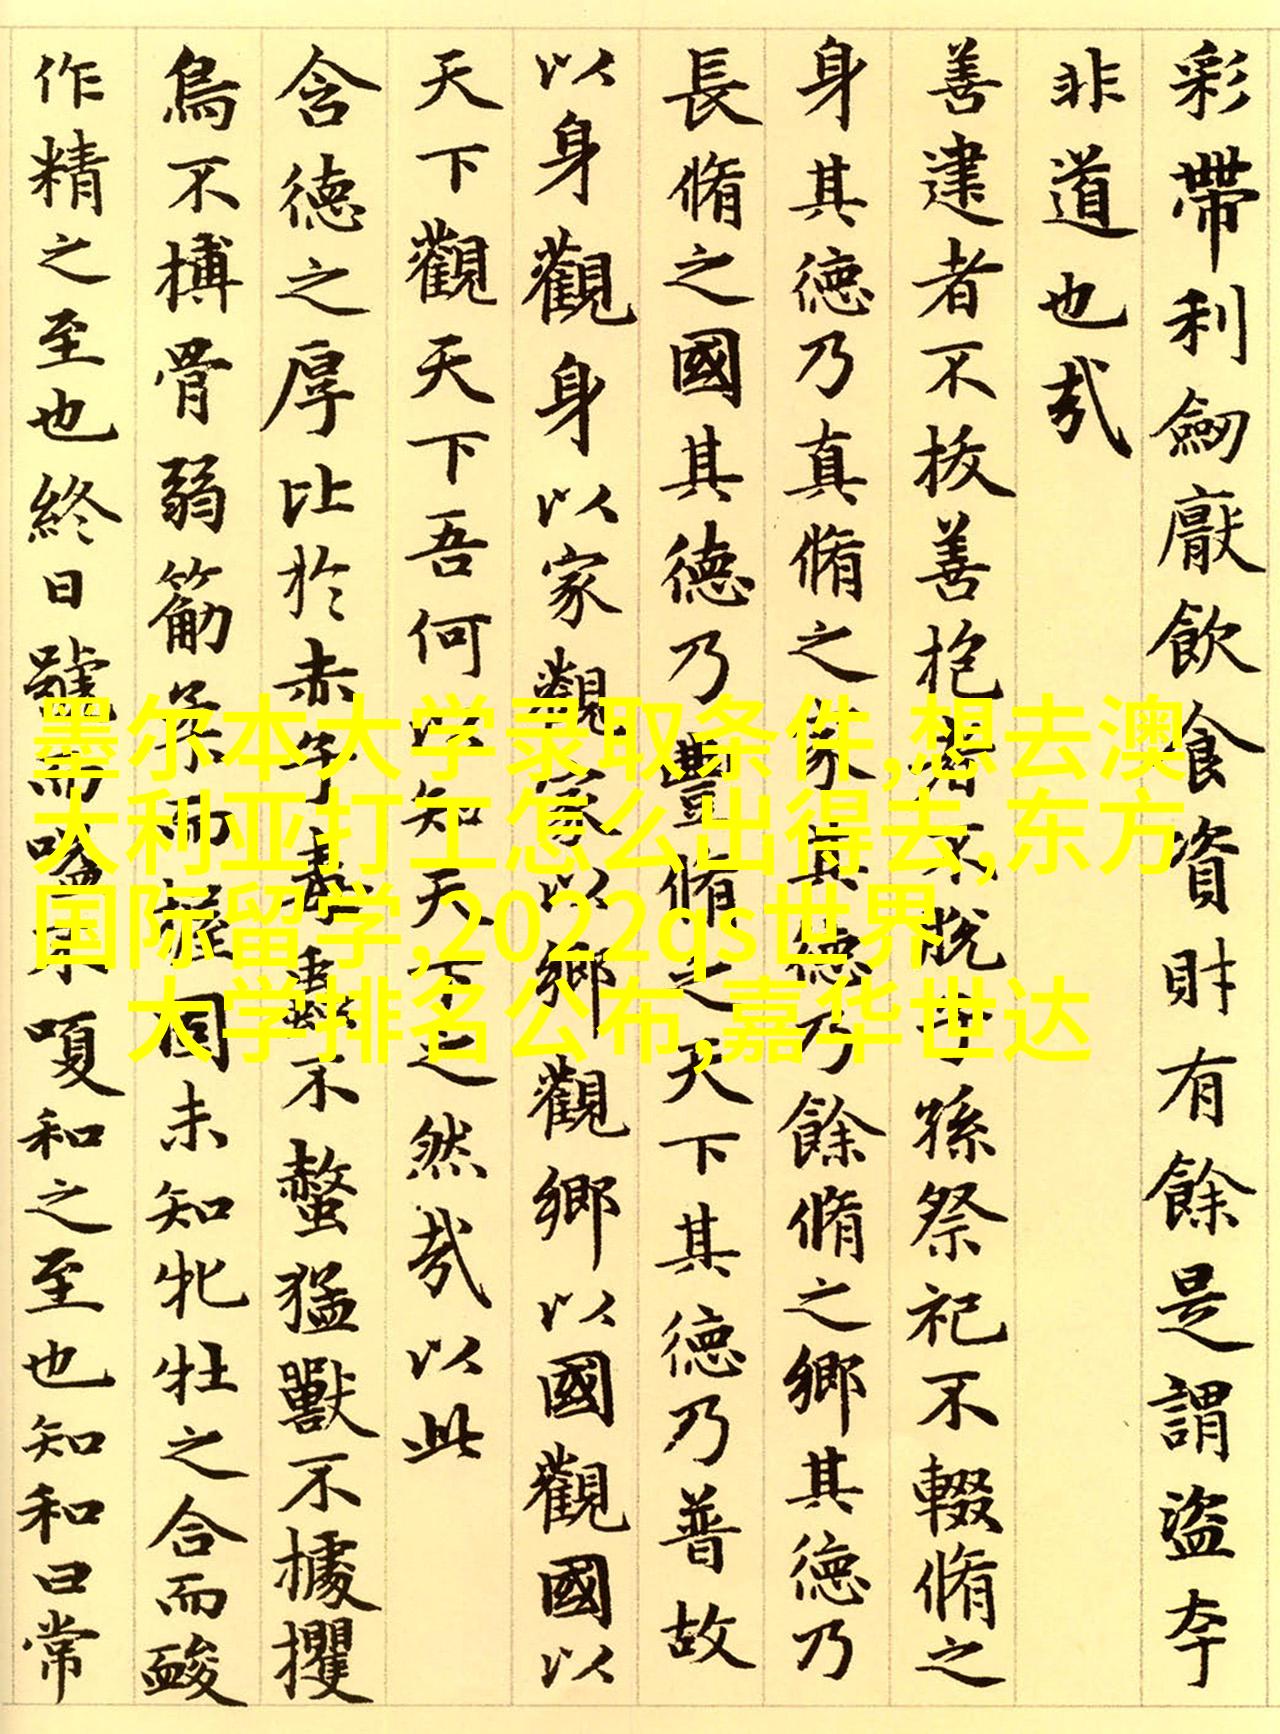 彩帶利劒厭飲食資財有餘是謂盜夸
非道也哉
善建者不拔善抱者不脫子孫祭祀不輟脩之
身其德乃真脩之家其德乃餘脩之鄉其德乃
長脩之國其德乃豐脩之天下其德乃普故
以身觀身以家觀家以鄉觀鄉以國觀國以
天下觀天下吾何以知天下之然哉以此
含德之厚比於赤子毒蟲不螫猛獸不據攫
鳥不搏骨弱筋柔而握固未知牝牡之合而䘒
作精之至也終日號而嗌不嗄和之至也知和曰常
墨尔本大学录取条件,想去澳
大利亚打工怎么出得去,东方
国际留学,2022qs世界
大学排名公布,嘉华世达